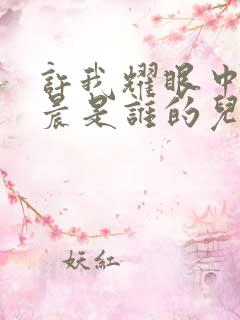 許我耀眼中
晨是誰的兒
妖紅